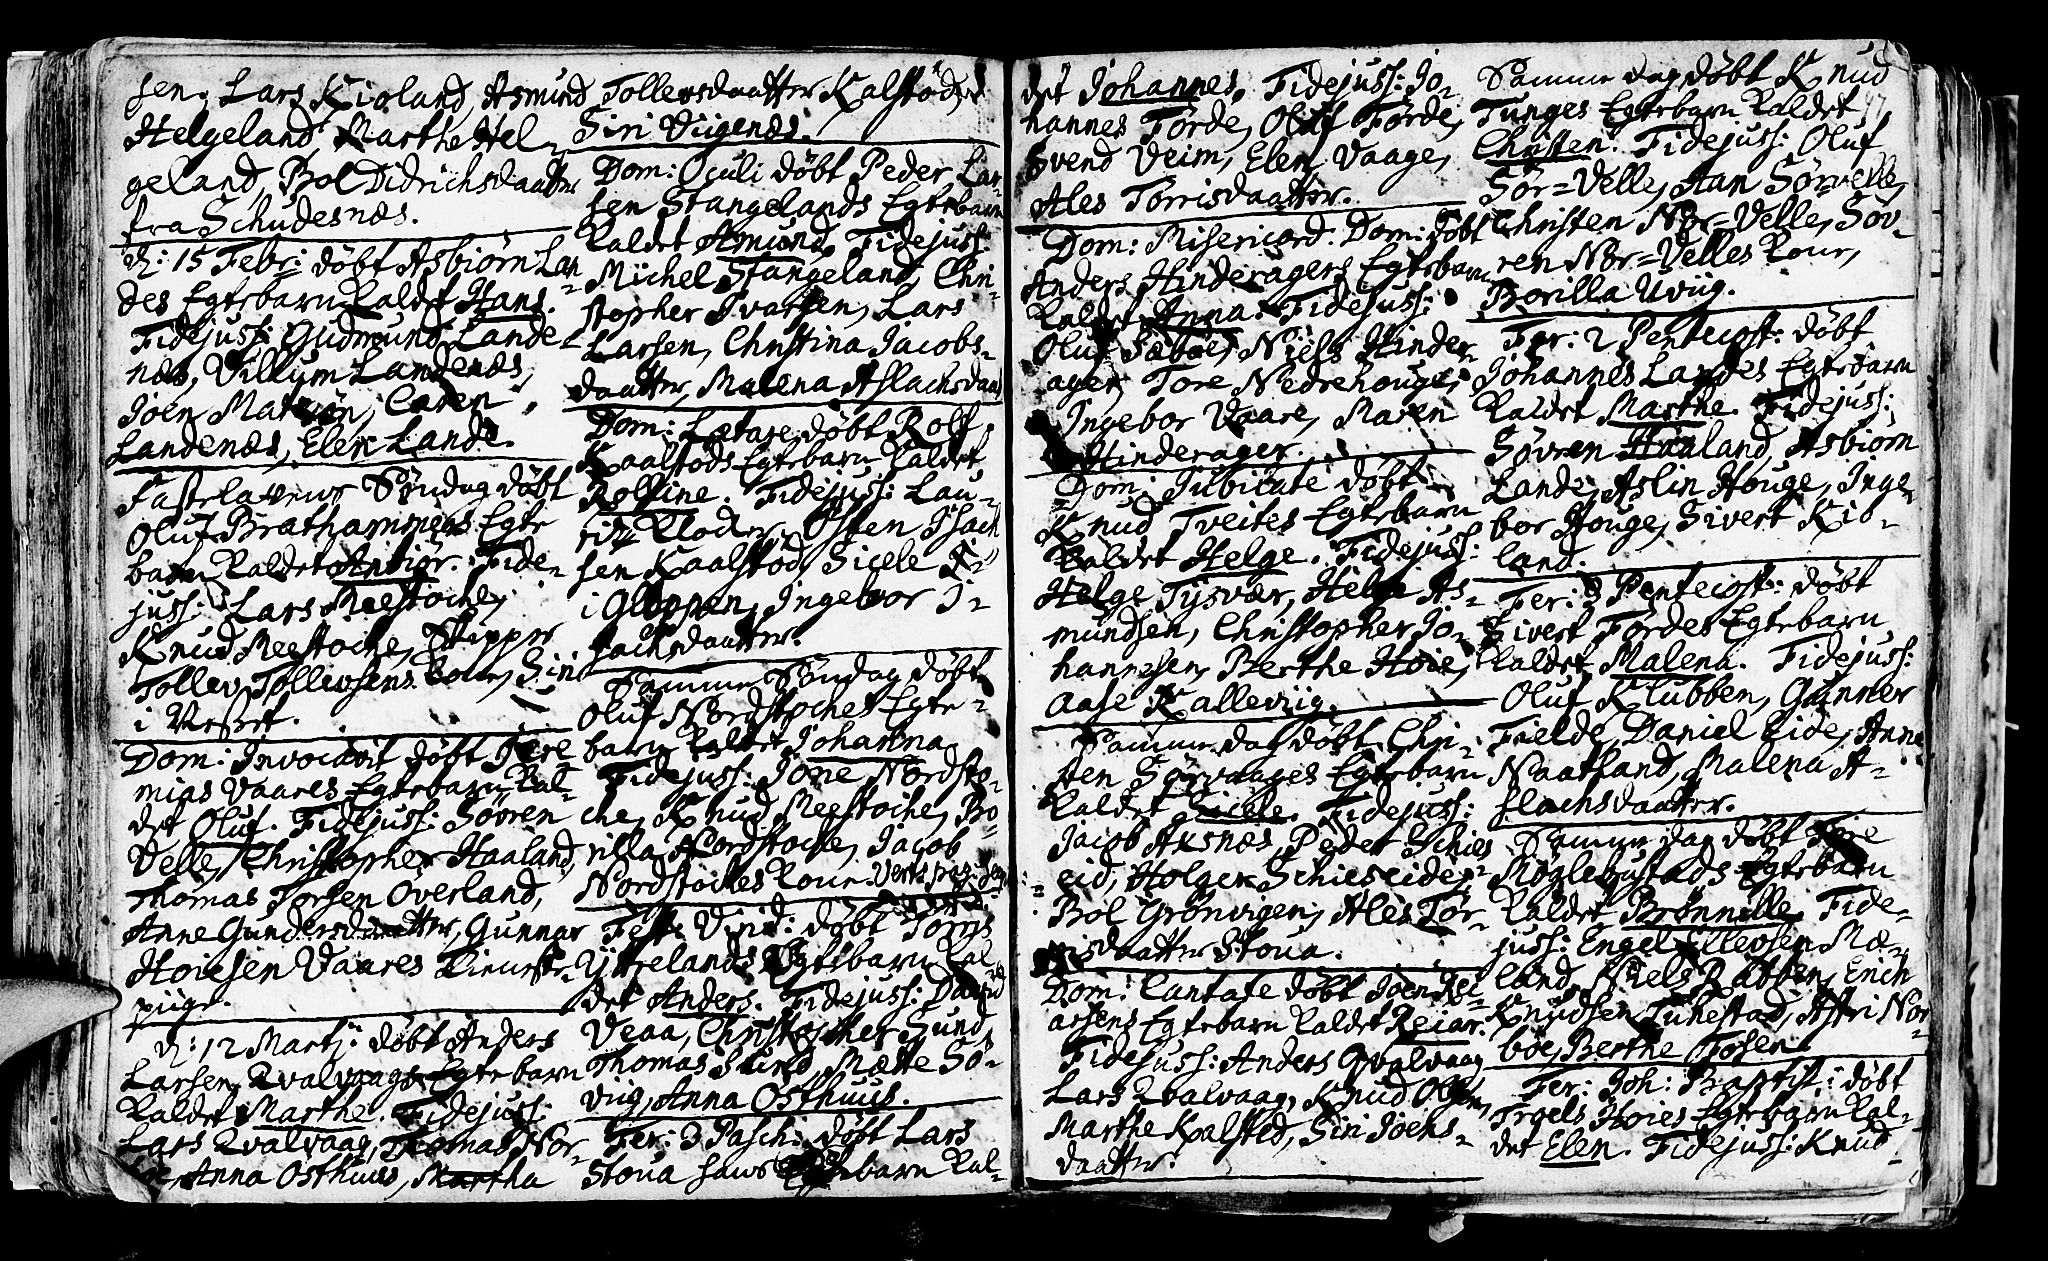 sen, Lars Kioland, Asmund
Helgeland, Marthe Hel-
geland, Bol Didrichsdaatter
fra Schudesnæs.
d: 15 Febr: døbt Asbiørn Lan-
des Egtebarn kaldet Hans.
Fidejuss: Gudmund Lande-
næs, Villum Landenæs,
Joen Caren
Landenæs, Elen Lande.
Fastelavens Søndag døbt
Oluf Brathammers Egte
barn kaldet Anbiør. Fide-
juss: Lars Meestoche,
Knud Meestoche, Skipper
Tollev Tollevsens kone, Siri
i
Dom: Invocavit døbt Jere
mias Vaares Egtebarn kal-
det Oluf. Fidejuss: Søvren
Velle, Christopher Haaland,
Thomas Torsen Overland,
Anne Gundersdaatter, Gunnar
Hoiesen Vaares tieneste-
pige.
d: 12 Martj: døbt Anders
Larsen Kvalvaags Egtebarn
kaldet Marthe. Fidejuss:
Lars Kvalvaag, Thomas Nor-
Anna Osthuus, Martha
Tollevsdaatter Kalstød,
Siri Viigenæs.
Dom: Oculi døbt Peder Lar-
sen Stangelands Egtebarn
kaldet Amund, Fidejuss:
Michel Stangeland, Chri-
stopher Ivarsen, Lars
Larsen, Christina Jacobs-
daatter, Malena Aslachsdaat
Dom: Lætare døbt Rolf
Kaalstøds Egtebarn kaldet
Rolfine. Fidejuss: Lau-
ritz Osten Isach
sen Kaalstød, Sicele
i Gloppen, Ingebor I-
sachsdaatter.
Samme Søndag døbt
Oluf Nordstoches Egte-
barn kaldet Johanna
Fidejuss: Jone Nordsto-
che, Knud Meestoche, Bo-
rilla Nordstoche, Jacob
Nordstoches kone. Verte pag:
Festi Virid: døbt Torris
Ytrelands Egtebarn kal
det Anders. Fidejuss: David
Veaa, Christopher Sund,
Thomas Sund, Mætte Sø-
viig, Anna Osthuus.
Fer: 3 Pasch: døbt Lars
Stoua hans Egtebarn kal-
det Johannes. Fidejuss: Jo-
hannes Førde, Oluf Førde,
Svend Veim, Elen Vaage,
Ales Torrisdaatter.
Dom: Misericord. Dom: døbt
Anders Hinderagers Egtebarn
kaldet Anna. Fidejuss:
Oluf Sæbøe, Niels Hinder-
ager, Tore Nedrehouge,
Ingebor Vaare, Maren
Hinderager.
Dom: Jubilate døbt
Knud Tveites Egtebarn
kaldet Helge. Fidejuss:
Helge Tysvær, Helge As-
mundsen, Christopher Jo-
hannesen, Berthe Hoie,
Aase Kalleviig.
Samme dag døbt Chri-
sten Sørvaages Egtebarn
kaldet Sicele. Fidejuss:
Jacob Axnæs, Peder Schies
eid, Holger Schieseide,
Bol Grønvigen, Ales Tor-
risdaatter Stoua.
Dom: Cantate døbt Joen Rei-
arsens Egtebarn kaldet Reiar.
Fidejuss: Anders Qvalvaag
Lars Kvalvaag, Knud Olsen,
Marthe Kalsted, Siri Joens-
daatter.
Samme dag døbt Knud
Tunges Egtebarn kaldet
Christen. Fidejuss: Oluf
Sør=Velle, Aan Sørvelle,
Christen Nør=Velle, Søv-
ren Nør=Velles kone,
Borilla Uviig.
Fer: 2 Pentecost: døbt
Johannes Landes Egtebarn
kaldet Marthe. Fidejuss:
Søvren Haaland, Asbiørn
Lande, Aslin Houge, Inge-
bor Houge, Sivert Kio-
land.
Fer: 3 Pentecost: døbt
Sivert Førdes Egtebarn
kaldet Malena. Fidejuss:
Oluf Klubben, Gunner
Fielde, Daniel Eide, Anne
Naatland, Malena A-
slachsdaatter.
Samme dag døbt Tore
Møglebustads Egtebarn
kaldet Brønnille, Fide-
juss: Engel Ellevsen Mæ-
land, Niels Rabben, Erich
Knudsen Tuhestad, Astri Nor-
bøe, Berthe Tosen.
Fer: Joh: Baptist: døbt
Troels Hoies Egtebarn kal-
det Elen. Fidejuss: Knud